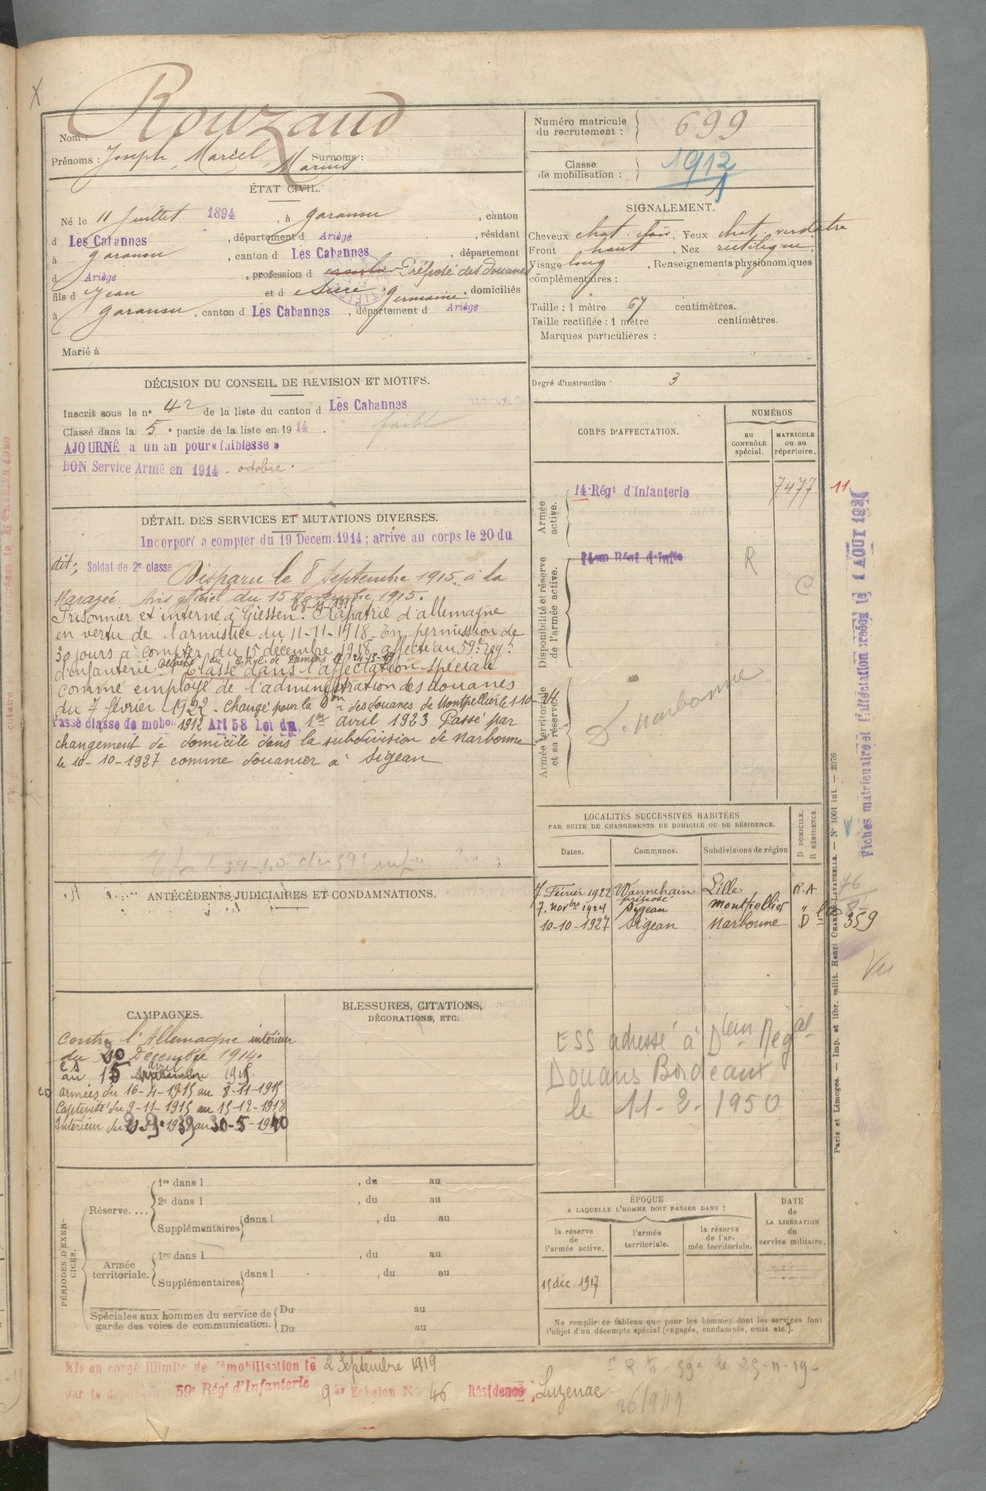 Nom : Rouzaud
Prénoms : Joseph, Marcel, Marius Surnoms :
Numéro matricule du recrutement : 699
Classe de mobilisation : 1912
ÉTAT CIVIL.
Né le 11 juillet 1894, à Garanou, canton
d Les Cabannes, département d Ariège, résidant
à Garanou, canton d Les Cabannes, département
d Ariège, profession d Préposé des Douanes
fils d Jean et d Germaine, domiciliés
à Garanou, canton d Les Cabannes, département d Ariège
Marié à
SIGNALEMENT.
Cheveux chat. Yeux chat. verdatre
Front haut, Nez rectiligne
Visage long, Renseignements physionomiques
complémentaires :
Taille : 1 mètre 67 centimètres.
Taille rectifiée : 1 mètre centimètres.
Marques particulières :
Degré d'instruction : 3
DÉCISION DU CONSEIL DE REVISION ET MOTIFS.
Inscrit sous le n° 42 de la liste du canton d Les Cabannes
Classé dans la 5e partie de la liste en 1914.
AJOURNÉ a un an pour « faiblesse »
BON Service Armé en 1914. octobre.
faible
DÉTAIL DES SERVICES ET MUTATIONS DIVERSES.
Incorporé a compter du 19 Decem. 1914 ; arrivé au corps le 20 du
dit ; Soldat de 2e classe Disparu le 8 Septembre 1915 à la
Harazée. Avis officiel du 15 1915.
Prisonnier et interné à Giessen. Rapatrié d'allemagne
en vertu de l'armistice du 11-11-1918. En permission de
30 jours à compter du 15 décembre 1918. affecté au 59e reg.t
d'infanterie. Classé dans l'affectation spéciale
comme employé de l'administration des douanes
du 7 février 1922. Changé pour la des douanes de Montpellier le 1-10-24
Passé classe de mobon 1912 Art 58 Loi du 1er avril 1923 Passé par
changement de domicile dans la subdivision de Narbonne
le 10-10-1927 comme douanier à Sigean
CORPS D'AFFECTATION.
NUMÉROS
au CONTRÔLE spécial.
MATRICULE ou au répertoire.
Armée active.
14 Régt d'Infanterie 7477 11
Disponibilité et réserve de l'armée active.
R
C
Armée territoriale et sa réserve.
D. Narbonne
LOCALITÉS SUCCESSIVES HABITÉES
PAR SUITE DE CHANGEMENTS DE DOMICILE OU DE RÉSIDENCE.
Dates. Communes. Subdivisions de région D DOMICILE. R RÉSIDENCE.
7 Février 1922 Wannehain Lille R-A
préposé
7 Novbre 1924 Sigean Montpellier "
10-10-1927 Sigean Narbonne D
359
76
Vu
ANTÉCÉDENTS JUDICIAIRES ET CONDAMNATIONS.
CAMPAGNES.
Contre l'Allemagne intérieur
du 20 Décembre 1914.
au 15 avril 1915.
armées du 16-4-1915 au 8-11-1915
Captivité du 9-11-1915 au 15-12-1918
Intérieur du au 30-5-1940
BLESSURES, CITATIONS,
DÉCORATIONS, ETC.
ESS adressé à Don Regal
Douanes Bordeaux
le 11-2-1950
PÉRIODES D'EXERCICES.
Réserve....
1re dans l , du au
2e dans l , du au
Supplémentaires dans l , du au
Armée territoriale.
1re dans l , du au
Supplémentaires dans l , du au
Spéciales aux hommes du service de garde des voies de communication.
Du au
Du au
ÉPOQUE
A LAQUELLE L'HOMME DOIT PASSER DANS :
la réserve de l'armée active.
l'armée territoriale.
la réserve de l'armée territoriale.
DATE de LA LIBÉRATION du service militaire.
15 déc. 1917
Ne remplir ce tableau que pour les hommes dont les services font
l'objet d'un décompte spécial (engagés, condamnés, omis, etc.).
Mis en congé illimité de démobilisation le 2 Septembre 1919
par le 59e Régt d'Infanterie 9e Echelon N° 46 Résidence Luzenac
Fiches matriculaire et d'affectation créées le 1 AOUT 192
Paris et Limoges. — Imp. et libr. milit. Henri CHARLES-LAVAUZELLE. — N° 1001 int. — 2076